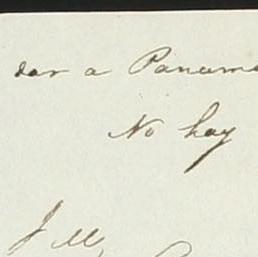 dar a Panamá
No hay